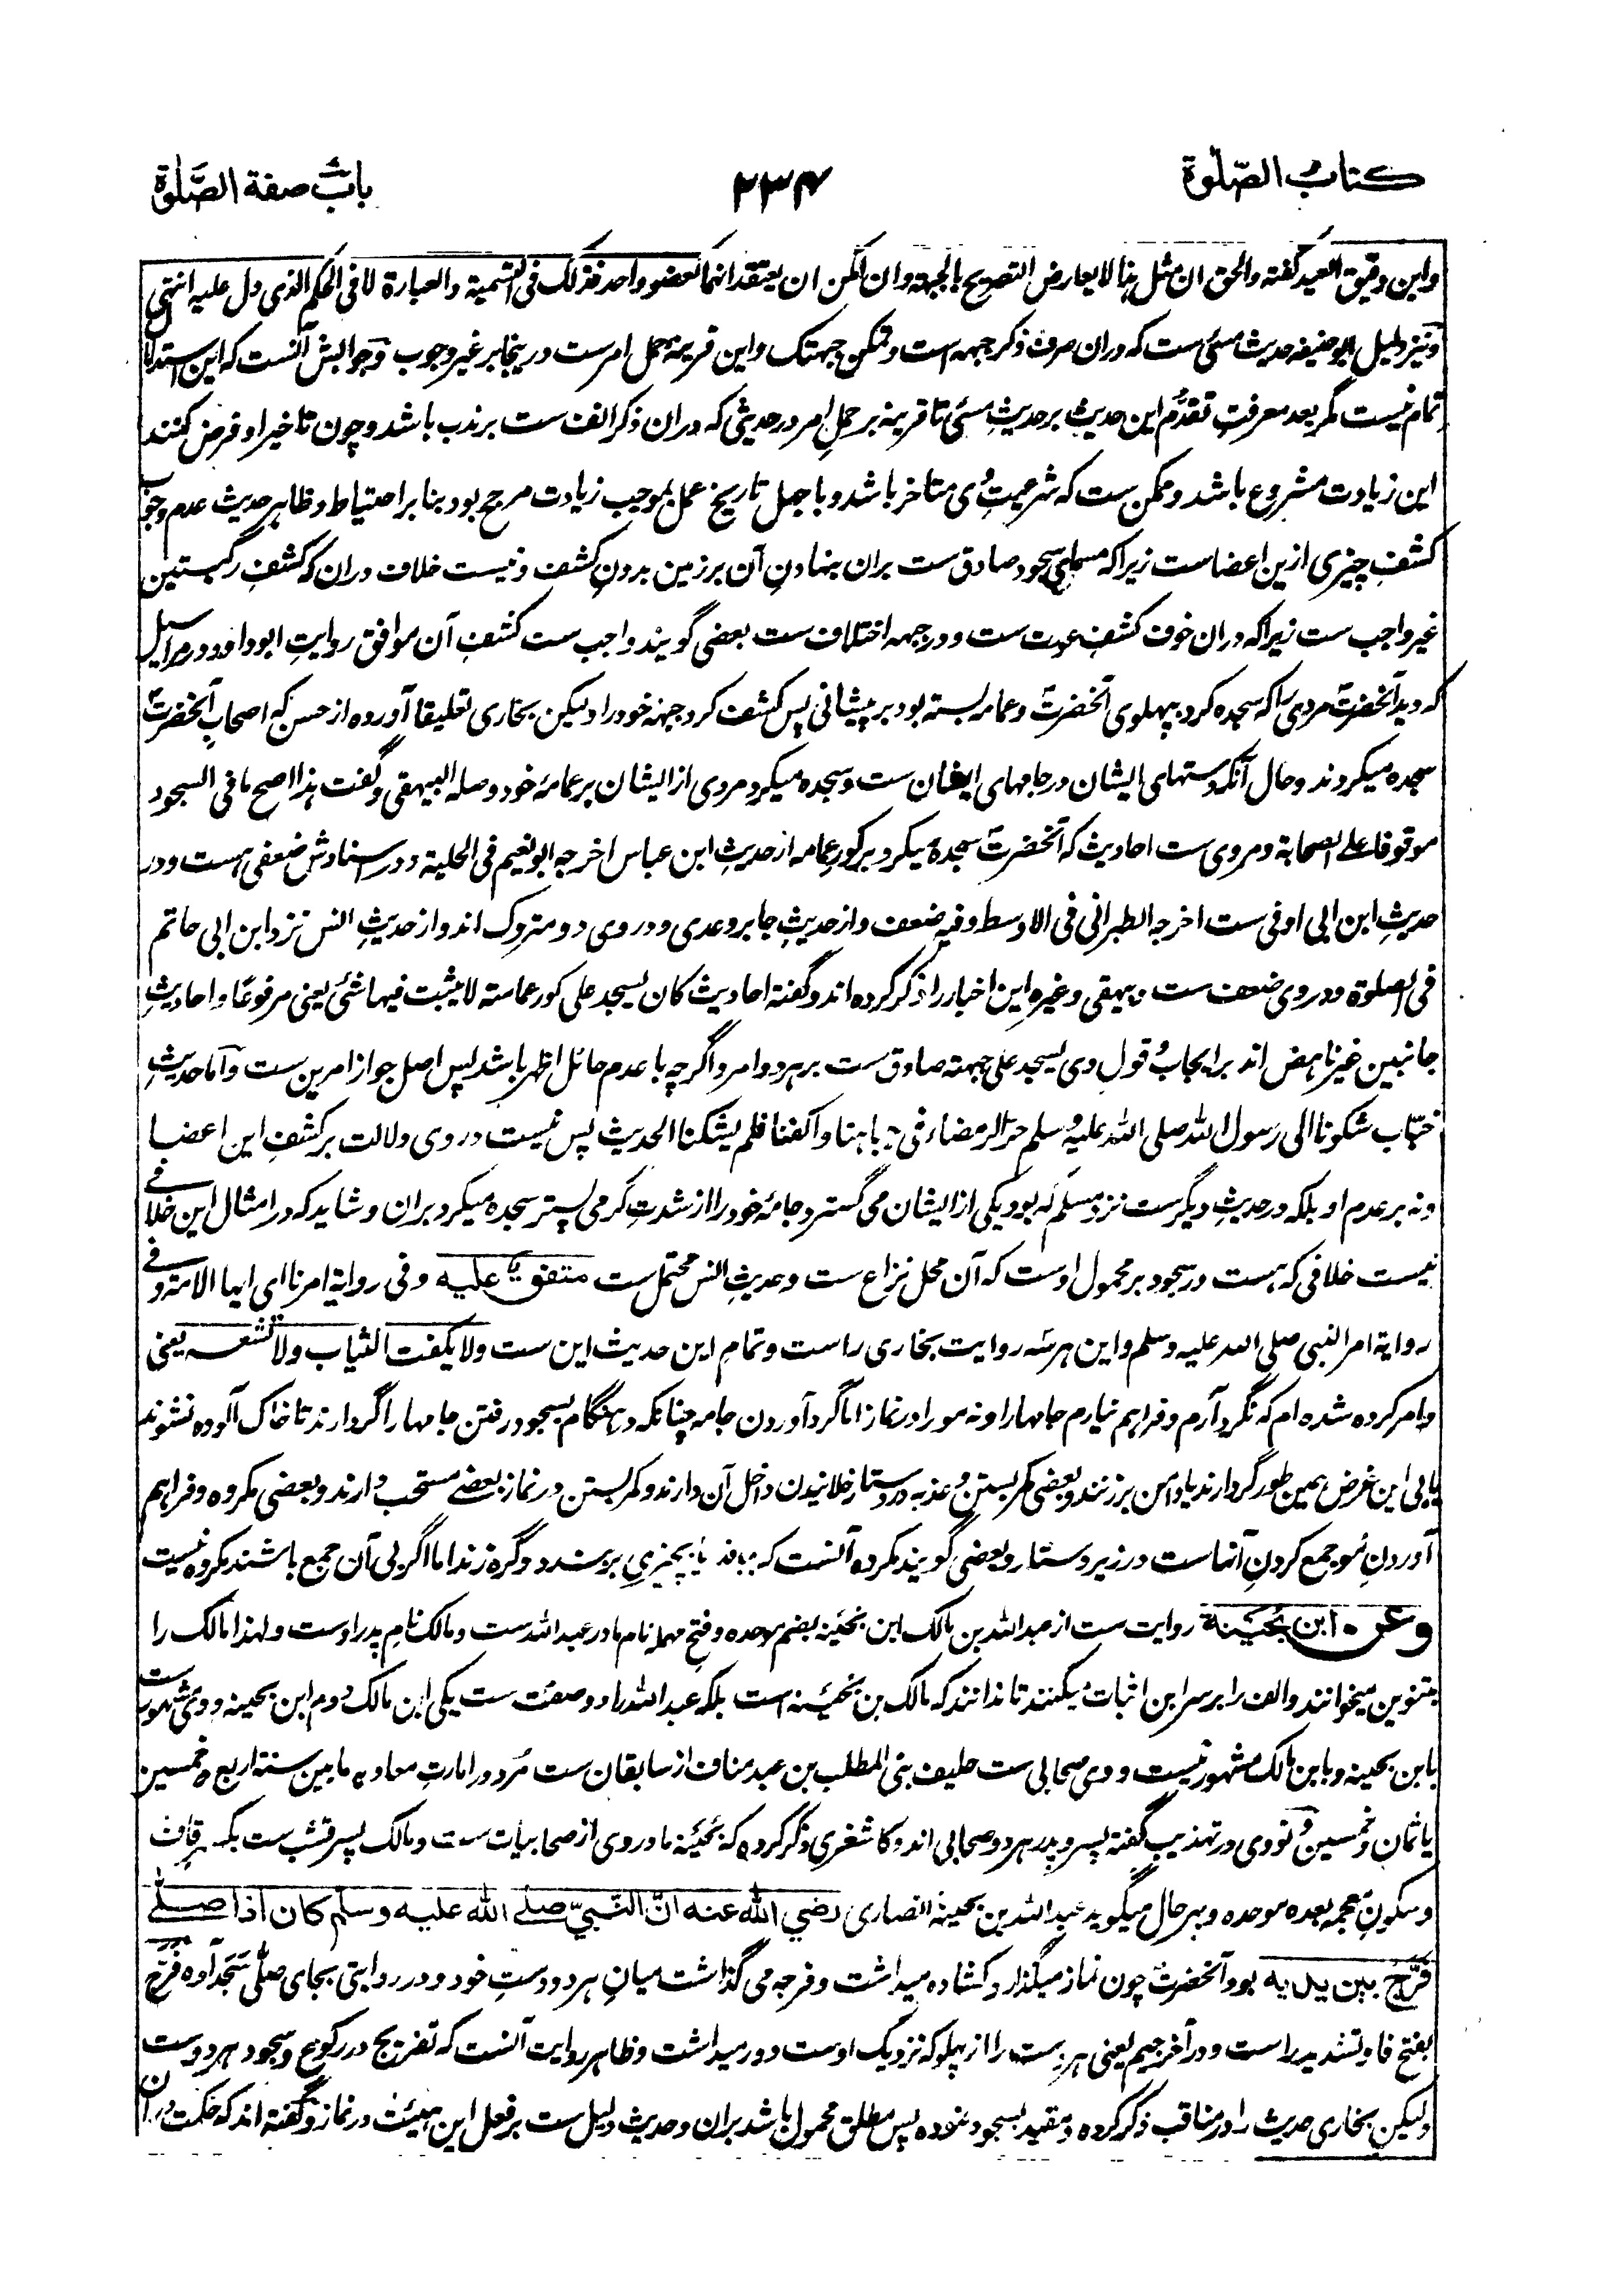 كتابُ الصّلٰوة
۲۳۴
بابُ صفة الصَّلٰوة
واین دقیق العید گفته والحق ان مثل هذا لا یعارض التصریح بالجبهة وان امکن ان یعتقد انهما کعضو واحد فذلک فی التسمیة والعبارة لا فی الحکم الذی دل علیه انتهی
ونیز دلیل ابوحنیفه حدیث مسئ ست که دران صرف ذکر جبهه است وتمکن جبهتک واین قرینهٔ حمل امرست درینجا بر غیر وجوب وجوابش آنست که این استدلال
تمام نیست مگر بعد معرفتِ تقدُّم این حدیث بر حدیثِ مسئ تا قرینه بر حملِ امر در حدیثی که دران ذکر انف ست بر ندب باشد وچون تاخیر او فرض کنند
این زیادت مشروع باشد وممکن ست که شرعیتِ وی متاخر باشد وبا جهل تاریخ عمل بموجب زیادت مرجح بود بنا بر احتیاط وظاهر حدیث عدم وجوب
کشفِ چیزی ازین اعضاست زیرا که مسمای سجود صادق ست بران بنهادنِ آن بر زمین بدونِ کشف ونیست خلاف دران که کشفِ رکبتین
غیر واجب ست زیرا که دران خوف کشفِ عورت ست ودر جبهه اختلاف ست بعضی گویند واجب ست کشفِ آن موافق روایتِ ابوداود در مراسیل
که دید آنحضرتؐ مردی را که سجده کرد بپهلوی آنحضرتؐ وعمامه بسته بود بر پیشانی پس کشف کرد جبهه خود را ولیکن بخاری تعلیقا آورده از حسن که اصحابِ آنحضرتؐ
سجده میکردند وحال آنکه دستهای ایشان در جامهای ایشان ست وسجده میکرد مردی از ایشان بر عمامهٔ خود وصله البیهقی وگفت هذا اصح ما فی السجود
موقوفا علی الصحابة ومروی ست احادیث که آنحضرتؐ سجده میکرد بر کورِ عمامه از حدیثِ ابن عباس اخرجه ابونعیم فی الحلیة ودر اسنادش ضعفی هست ودر
حدیثِ ابن ابی اوفی ست اخرجه الطبرانی فی الاوسط وفیه ضعف واز حدیثِ جابر وعدی ودر وی دو متروک اند واز حدیثِ انس نزد ابن ابی حاتم
فی الصلوة ودر وی ضعف ست وبیهقی وغیره این اخبار را ذکر کرده اند وگفته احادیث کان یسجد علی کور عمامته لا یثبت فیها شئ یعنی مرفوعًا واحادیثِ
جانبین غیر ناهض اند بر ایجاب وقول وی یسجد علی جبهته صادق ست بر هر دو امر واگرچه با عدم حائل اظهر باشد پس اصل جواز امرین ست واما حدیثِ
خبّاب شکونا الی رسول الله صلی الله علیه وسلم حرّ الرمضاء فی جباهنا واکفنا فلم یشکنا الحدیث پس نیست در وی دلالت بر کشفِ این اعضا
ونه بر عدم او بلکه در حدیثِ دیگرست نزد مسلم که بود یکی از ایشان می گسترد جامهٔ خود را از شدتِ گرمی پستر سجده میکرد بران وشاید که در امثال این خلافی
نیست خلافی که هست در سجود بر محمول اوست که آن محل نزاع ست وحدیثِ انس محتمل ست متفق علیه وفی روایة امرنا ای ایها الامة وفی
روایة امر النبی صلی الله علیه وسلم واین هر سه روایت بخاری راست وتمامِ این حدیث این ست ولا یکفت الثیاب ولا الشعر یعنی
وامر کرده شده ام که نگرد آرم وفراهم نیارم جامها را ونه مو را در نماز اما گرد آوردن جامه چنانکه در هنگام بسجود رفتن جامها را گرد آرند تا خاک آلوده نشوند
یا بی این غرض همین طور گردآرند یا دامن بر زنند وبعضی کمر بستن وعذبه در دستار خلانیدن داخل آن دارند وکمر بستن در نماز بعضے مستحب دارند وبعضی مکروه وفراهم
آوردنِ مُو جمع کردنِ آنهاست در زیر دستار وبعضی گویند مکروه آنست که ببافد یا بچیزی بربندد وگره زند اما اگر بی آن جمع باشند مکروه نیست
وعن ابن بُحَیْنة روایت ست از عبدالله بن مالک ابن بُحَیْنه بضم موحده وفتحِ مهمله نام مادر عبدالله ست ومالک نامِ پدر اوست ولهذا مالک را
بتنوین میخوانند والف را بر سر ابن اثبات میکنند تا ندانند که مالک بن بُحَیْنه است بلکه عبدالله را دو صفت ست یکی ابن مالک دوم ابن بحینه ووی مشهورست
بابن بحینه وبابن مالک مشهور نیست ووی صحابی ست حلیف بنی المطلب بن عبد مناف از سابقان ست مُرد در امارتِ معاویه مابین سنة اربع وخمسین
یا ثمان وخمسین ونووی در تهذیب گفته پسر وپدر هر دو صحابی اند وکاشغری ذکر کرده که بُحَیْنه مادر وی از صحابیات ست ومالک پسر قشب ست بکسر قاف
وسکونِ معجمه بعده موحده وبهرحال میگوید عبدالله بن بحینهٔ انصاری رضي الله عنه انّ النّبيّ صلے الله علیه وسلم كان اذا صلّے
فرّج بین یدیه بود آنحضرتؐ چون نماز میگذارد کشاده میداشت وفرجه می گذاشت میانِ هر دو دستِ خود ودر روایتی بجای صلّی سَجَد آوه فرّج
بفتحِ فا وتشدید راست ودر آخر جیم یعنی هر دست را از پهلو که نزدیک اوست دور میداشت وظاهر روایت آنست که تفریج در رکوع وسجود هر دوست
ولیکن بخاری حدیث را در مناقب ذکر کرده ومقید بسجود نموده پس مطلق محمول باشد بران وحدیث دلیل ست بر فعل این هیئت در نماز وگفته اند که حکمت دران